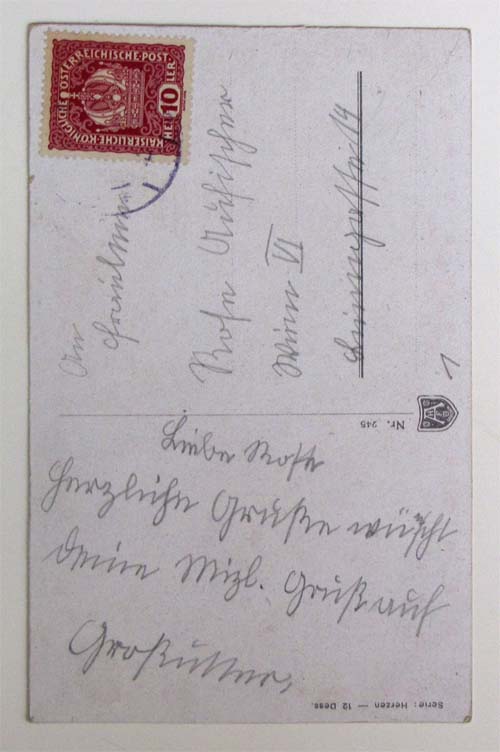 KAISERLICHE·KÖNIGLICHE·ÖSTERREICHISCHE·POST·
HEL 10 LER.
An
Fräulein
Rosa
Wien VI
14
Nr. 245
Liebe Rosa
herzliche Grüße wüscht
deine Mizl. Gruß auf
Großutter.
Serie: Herzen — 12 Dess.
1